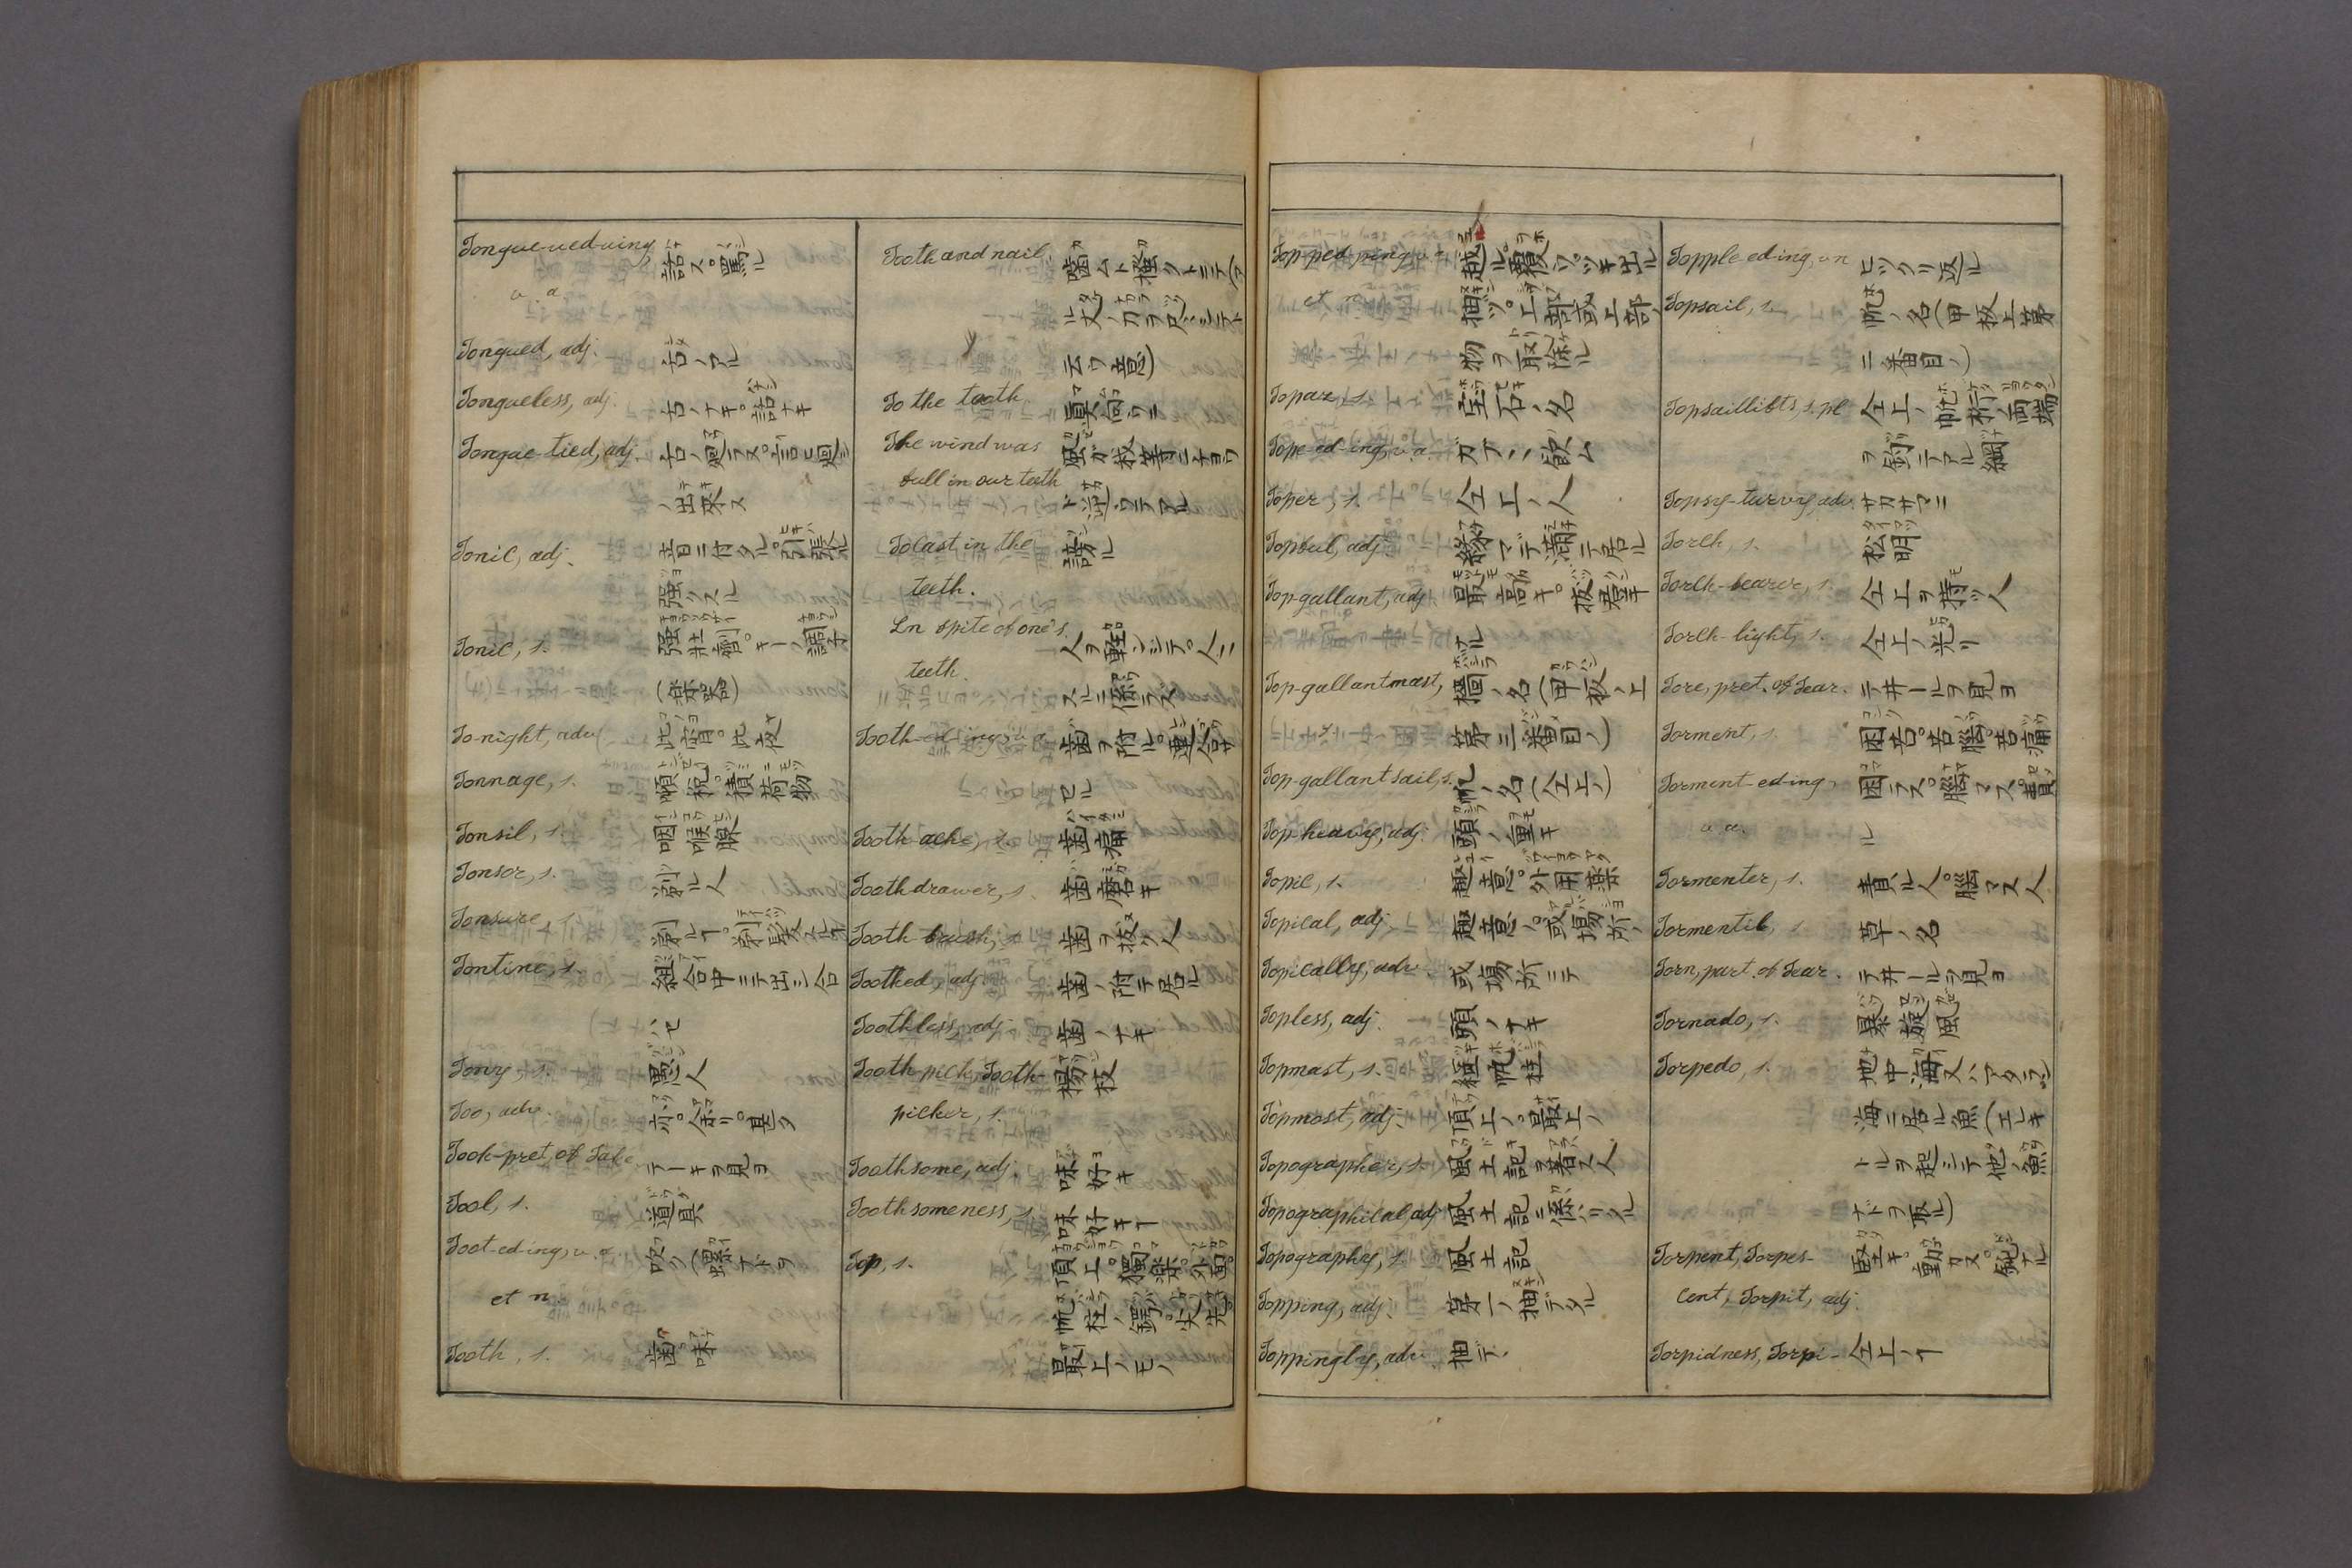 Tongue-ued-uing, 話ス。罵ル
v. a.
Tongued, adj. 舌ノアル
Tongueless, adj. 舌ノナキ。話ナキ
Tongue-tied, adj. 舌ノ廻ラヌ。言ヒ廻シ
ノ出來ヌ
Tonic, adj. 音ニ付タル。引張ル
強クスル
Tonic, s. 強壮劑。キーノ調子
(樂器)
To-night, adv. 此宵。此夜
Tonnage, s. 頓税。積荷物
Tonsil, s. 咽喉腺
Tonsor, s. 剃ル人
Tonsure, s. 剃ルヿ。剃髪スルヿ
Tontine, s. 組合中ニテ出シ合
ハセ
Tony, s. 愚人
Too, adv. 亦。余リ。甚ク
Took-pret. of Take テーキヲ見ヨ
Tool, s. 道具
Toot-ed-ing, v. a. 吹ク(螺ナドヲ
et n.
Tooth, s. 歯。味
Tooth and nail. 噛ムト掻クトニテ(ア
ル丈ノ力ヲ尽シテト
云フ意)
To the teeth 眞向フニ
The wind was 風ガ我等ニチヨウ
full in our teeth ド逆フテアル
To cast in the 謗ル
teeth.
In spite of one's 人ヲ軽ンシテ。人ニ
teeth. スルニ係ラズ
Tooth-ed-ing, v. a. 歯ヲ附ル。連合サ
セル
Tooth-ache, s. 歯痛
Tooth drawer, s. 歯磨キ
Tooth-brush, s. 歯ヲ抜ク人
Toothed, adj. 歯ノ附テ居ル
Toothless, adj. 歯ノナキ
Tooth-pick, Tooth- 楊枝
picker, s.
Toothsome, adj. 味好キ
Toothsomeness, s. 味好キヿ
Top, s. 頂上。獨楽。外面。
帆柱ノ鐔。尖先
最上ノモノ
Top-ped-ping, v. a. 越ル。覆フ。ツキ出ル
et n. 抽ヅ。上部或上部ノ
物ヲ取除ル
Topaz, s. 宝石ノ名
Tope-ed-ing, v. a. ガブヽヽ飲ム
Toper, s. 仝上ノ人
Topful, adj. 縁マデ満テ居ル
Top-gallant, adj. 最高キ。抜群キ
ナル
Top-gallantmast, 檣ノ名(甲板ノ上
第三番目ノ)
Top-gallant sail, s. 帆ノ名(仝上ノ)
Top heavy, adj. 頭ノ重キ
Topic, s. 趣意。外用薬
Topical, adj. 趣意ノ。或場所ノ
Topically, adv. 或場所ニテ
Topless, adj. 頭ノナキ
Topmast, s. 継帆柱
Topmost, adj. 頂上ノ。最上ノ
Topographer, s. 風土記ヲ著ス人
Topographical adj. 風土記ニ係ハリタル
Topography, s. 風土記
Topping, adj. 第一ノ抽デタル
Toppingly, adv. 抽デヽ
Topple-ed-ing, v n ヒツクリ返ル
Topsail, s. 帆ノ名(甲板上第
二番目ノ)
Topsaillifts, s. pl 仝上ノ帆桁ノ両端
ヲ釣テアル綱
Topsy-turvy, adv. サカサマニ
Torch, s. 松明
Torch-bearer, s. 仝上ヲ持ツ人
Torch-light, s. 仝上ノ光リ
Tore, pret. of Tear. テ井ールヲ見ヨ
Torment, s. 困苦。苦腦。苦痛
Torment-ed-ing, 困ラス。腦マス。責
v. a. ル
Tormenter, s. 責ル人。腦マス人
Tormentil, s. 草ノ名
Torn, part. of Tear. テ井ールヲ見ヨ
Tornado, s. 暴旋風
Torpedo, s. 地中海又ハアタラン
海ニ居ル魚(エレキ
トルヲ起シテ他ノ魚
ナドヲ取ル)
Torpent, Torpes- 堅キ。動カヌ。鈍ナル
cent, Torpit, adj.
Torpidness, Torpi- 仝上ノヿ